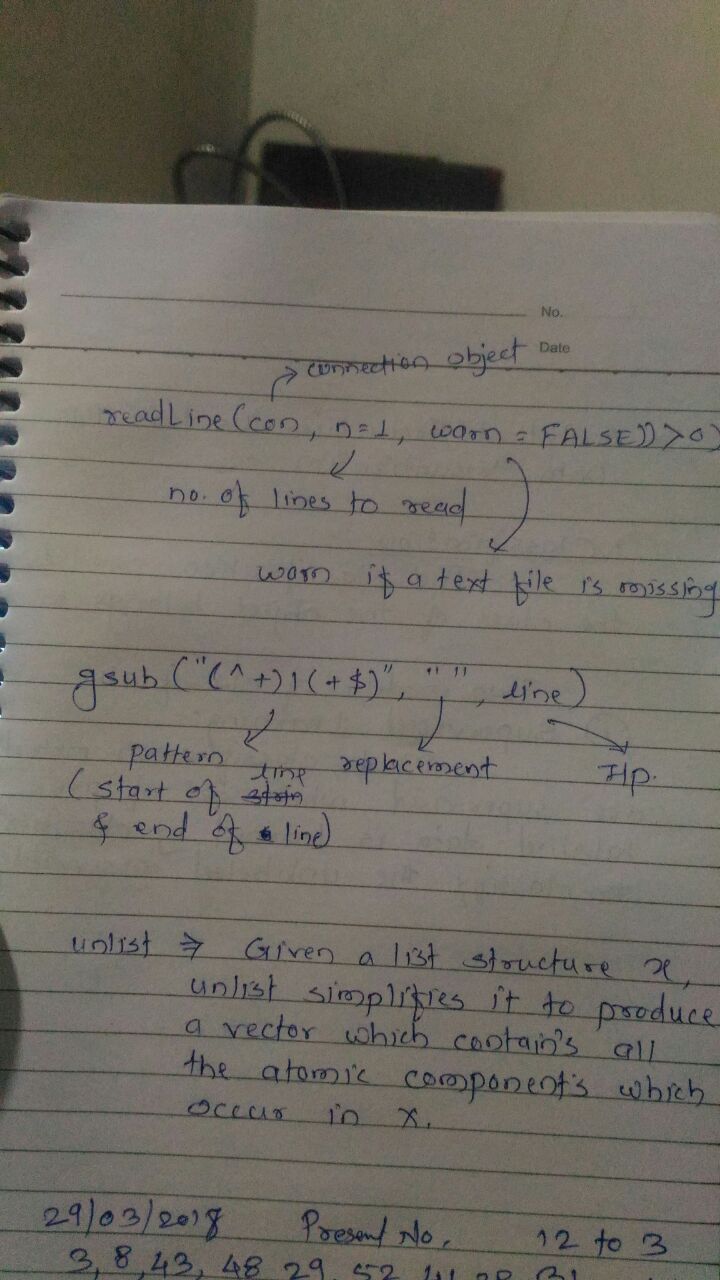 No.
Date
connection object
readLine(con, n=1, warn = FALSE))>0)
no. of lines to read
warn if a text file is missing
gsub ("(^ +)|(+$)", "", line)
pattern replacement I/p.
(start of line
& end of line)
unlist ⇒ Given a list structure x,
unlist simplifies it to produce
a vector which contain's all
the atomic component's which
occur in x.
29/03/2018 Present No. 12 to 3
3, 8, 43, 48 29 52